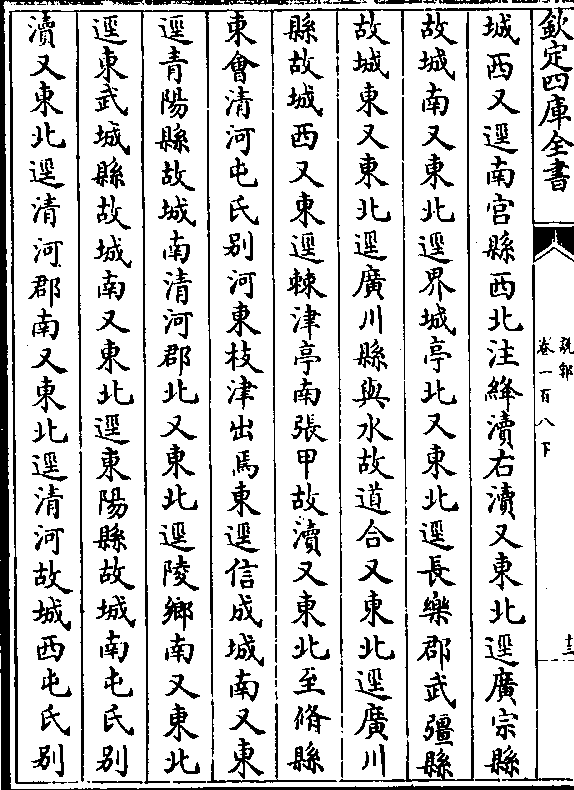 欽定四庫全書
說郛
卷一百八下
十三
城西又逕南宫縣西北注絳瀆右瀆又東北逕廣宗縣
故城南又東北逕界城亭北又東北逕長樂郡武彊縣
故城東又東北逕廣川縣與水故道合又東北逕廣川
縣故城西又東逕棘津亭南張甲故瀆又東北至脩縣
東會清河屯氏别河東枝津出焉東逕信成城南又東
逕青陽縣故城南清河郡北又東北逕陵鄉南又東北
逕東武城縣故城南又東北逕東陽縣故城南屯氏别
瀆又東北逕清河郡南又東北逕清河故城西屯氏别